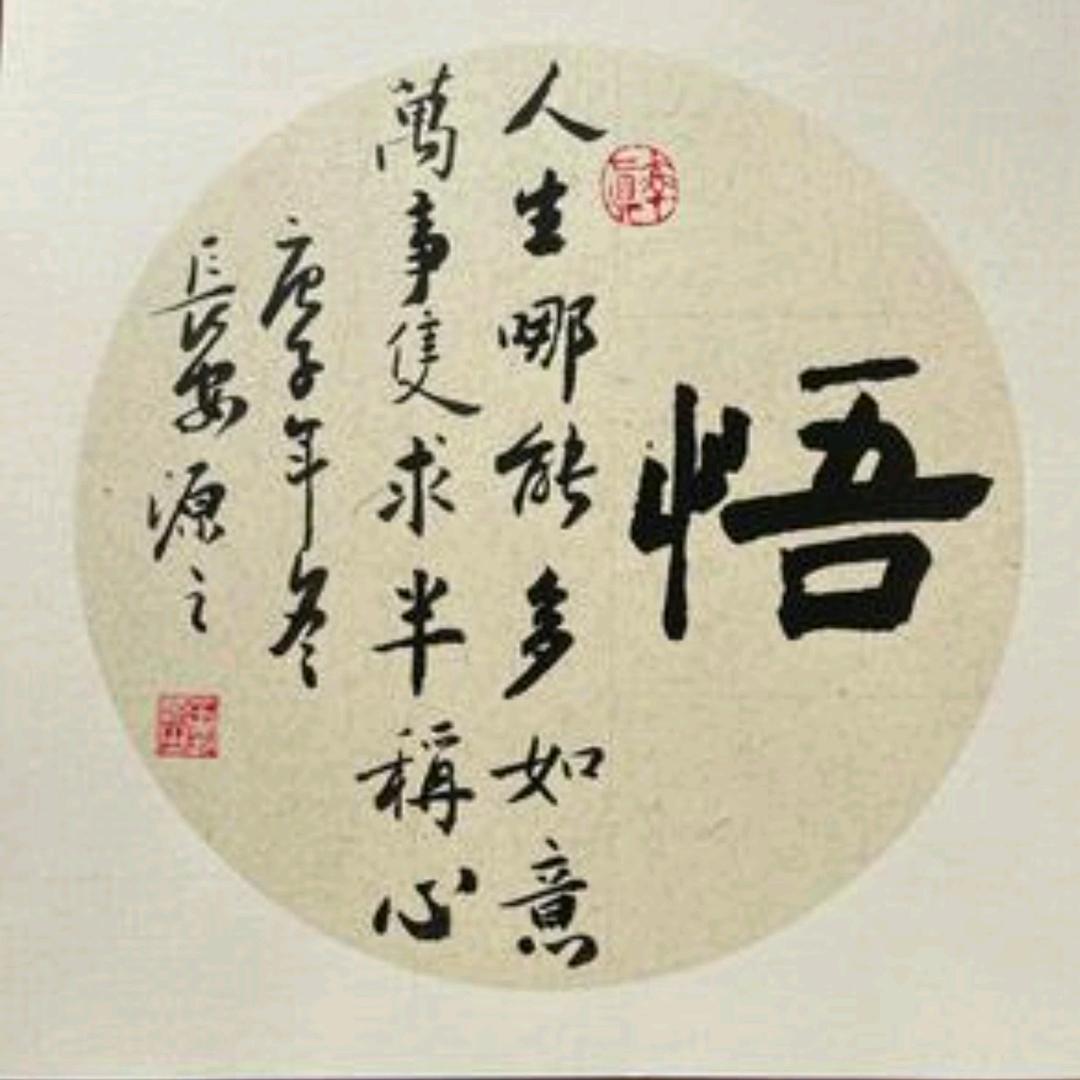 悟
人生哪能多如意
萬事隻求半稱心
庚子年冬
長安源之